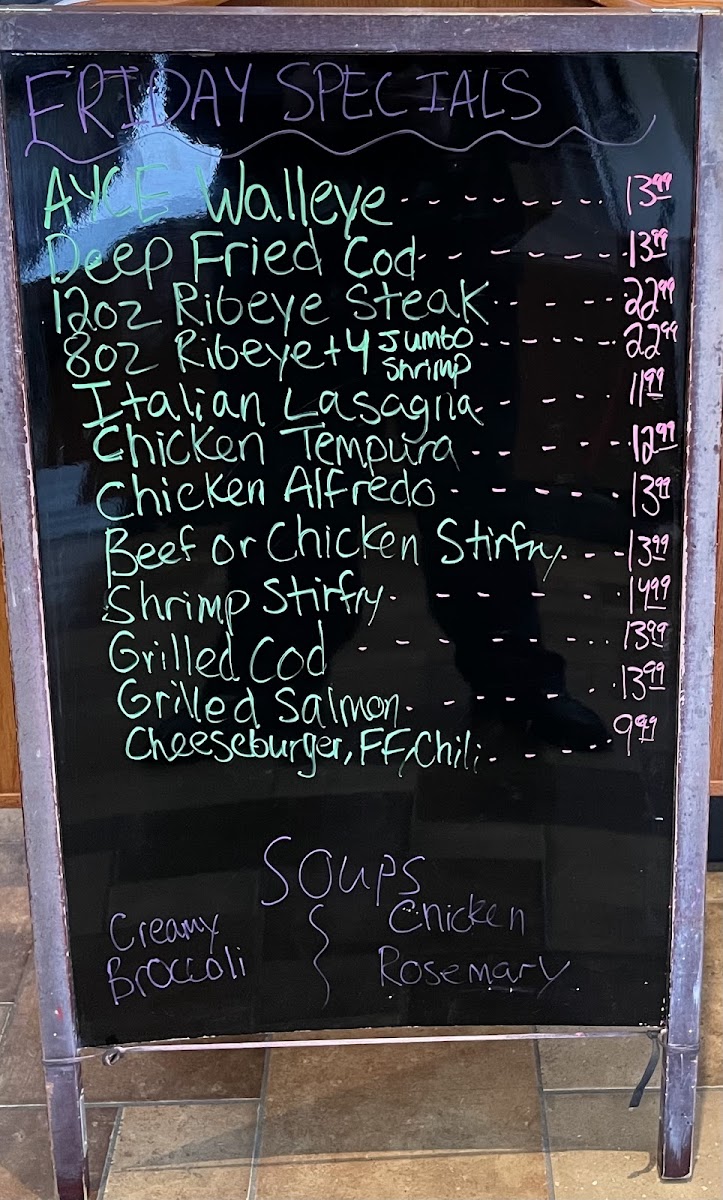 FRIDAY SPECIALS
AYCE Walleye - - - - - - - - 13.99
Deep Fried Cod - - - - - - - 13.99
12oz Ribeye Steak - - - - - 22.99
8oz Ribeye + 4 Jumbo Shrimp - - - - - - 22.99
Italian Lasagna - - - - - 11.99
Chicken Tempura - - - - - 12.99
Chicken Alfredo - - - - - - 13.99
Beef or Chicken Stirfry - - - 13.99
Shrimp Stirfry - - - - - - 14.99
Grilled Cod - - - - - - - - 13.99
Grilled Salmon - - - - - - 13.99
Cheeseburger, FF, Chili - - - - 9.99
Soups
Creamy Broccoli
Chicken Rosemary